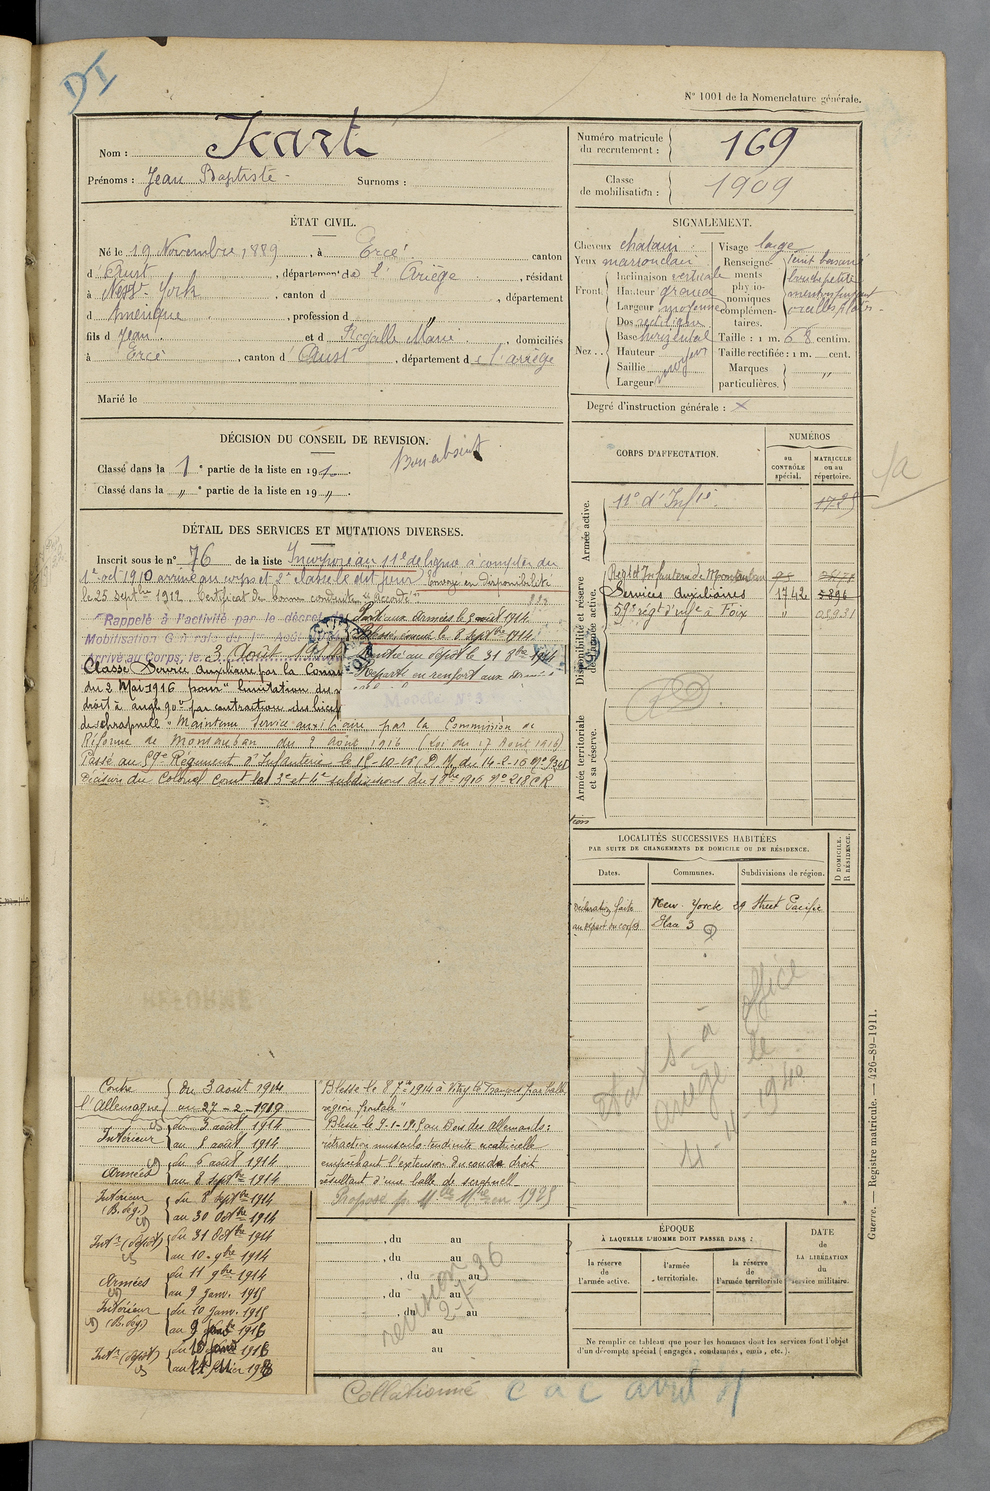 DI
N° 1001 de la Nomenclature générale.
Nom : Icart
Prénoms : Jean Baptiste - Surnoms :
Numéro matricule du recrutement : 169
Classe de mobilisation : 1909
ÉTAT CIVIL.
Né le 19 Novembre, 1889, à Ercé canton
d'Oust, département de l'Ariège, résidant
à New-York, canton d, département
d Amérique, profession d "
fils d Jean et d Rogalle Marie, domiciliés
à Ercé, canton d'Oust, département d e l'ariège
Marié le
SIGNALEMENT.
Cheveux chatain
Yeux marron clair
Front. Inclinaison verticale
Hauteur grand
Largeur moyenne
Nez. Dos rectiligne
Base horizontal
Hauteur
Saillie moyen
Largeur
Visage large
Renseignements physionomiques complémentaires. teint basané
bouche petite
oreilles plates -
Taille : 1 m. 68 centim.
Taille rectifiée : 1 m. cent.
Marques particulières. "
Degré d'instruction générale : X
DÉCISION DU CONSEIL DE REVISION.
Classé dans la 1 e partie de la liste en 1910. Bon absent
Classé dans la " e partie de la liste en 19 ".
CORPS D'AFFECTATION.
NUMÉROS
au CONTRÔLE spécial.
MATRICULE ou au répertoire.
Armée active.
11e d'Infie. 1725
fa
Disponibilité et réserve de l'armée active.
Regt d'Infanterie de Montauban
Services Auxiliaires 1742 5896
59e régt d'inf ie à Foix " 05931
Armée territoriale et sa réserve.
DÉTAIL DES SERVICES ET MUTATIONS DIVERSES.
Inscrit sous le n° 76 de la liste Incorporé au 11e de ligne à compter du
1er oct 1910 arrivé au corps et 2e classe le dit jour Envoyé en disponibilité
le 25 septbre 1912. Certificat de bonne conduite "accordé"
Rappelé à l'activité par le décret de
Mobilisation Générale du 1er Août
Arrivé au Corps, le 3 Août 1914
Parti aux armées le 5 août 1914.
Blessé, évacué le 8 septbre 1914.
Rentré au dépôt le 31 8bre 1914
Reparti en renfort aux armées
Classé Service Auxiliaire par la Comm
du 2 Mai 1916 pour "limitation du
droit à angle 90° par contraction du bicep
de schrapnell" Maintenu Service auxiliaire par la Commission de
Réforme de Montauban du 9 août 1916 (Loi du 17 Août 1915)
Passé au 59e Régiment d'Infanterie le 15-10-16, D. M. du 14-2-16 N°
Décision du Colonel Comt les 3e et 4e subdivisions du 1 8bre 1916 N° 218 CR
Modèle N° 3
LOCALITÉS SUCCESSIVES HABITÉES
PAR SUITE DE CHANGEMENTS DE DOMICILE OU DE RÉSIDENCE.
Dates. Communes. Subdivisions de région. D DOMICILE. R RÉSIDENCE.
Déclaration faite New-Yorck 29 Street Pacific
au départ du corps
état s- à office
ariège le
11-1940
RÉFORME
Contre l'Allemagne du 3 août 1914
au 27-2-1919
Intérieur du 3 août 1914
au 5 août 1914
Armées du 6 août 1914
au 8 septbre 1914
Intérieur (B. deg.) du 8 septbre 1914
au 30 Octbre 1914
Intr (dépôt) du 31 Octbre 1914
au 10-9bre 1914
Armées du 11 9bre 1914
au 9 Janv. 1915
Intérieur (B. deg.) du 10 Janv. 1915
Intr (dépôt)
"Blessé le 8 7bre 1914 à Vitry le François par balle,
région frontale"
Blessé le 9-1-1915 au Bois des allemands :
rétraction musculo-tendinite cicatricielle
empêchant l'extension du coude droit
résultant d'une balle de scrapnell
Proposé pr Mlle Mre en 1925
, du au
, du au
, du au
, du au
, du au
au
au
revision 2-7-36
ÉPOQUE
À LAQUELLE L'HOMME DOIT PASSER DANS :
la réserve de l'armée active.
l'armée territoriale.
la réserve de l'armée territoriale
DATE de LA LIBÉRATION du service militaire.
Ne remplir ce tableau que pour les hommes dont les services font l'objet
d'un décompte spécial (engagés, condamnés, omis, etc.).
Guerre. — Registre matricule. — 426-89-1911.
Collationné c a c avril 31